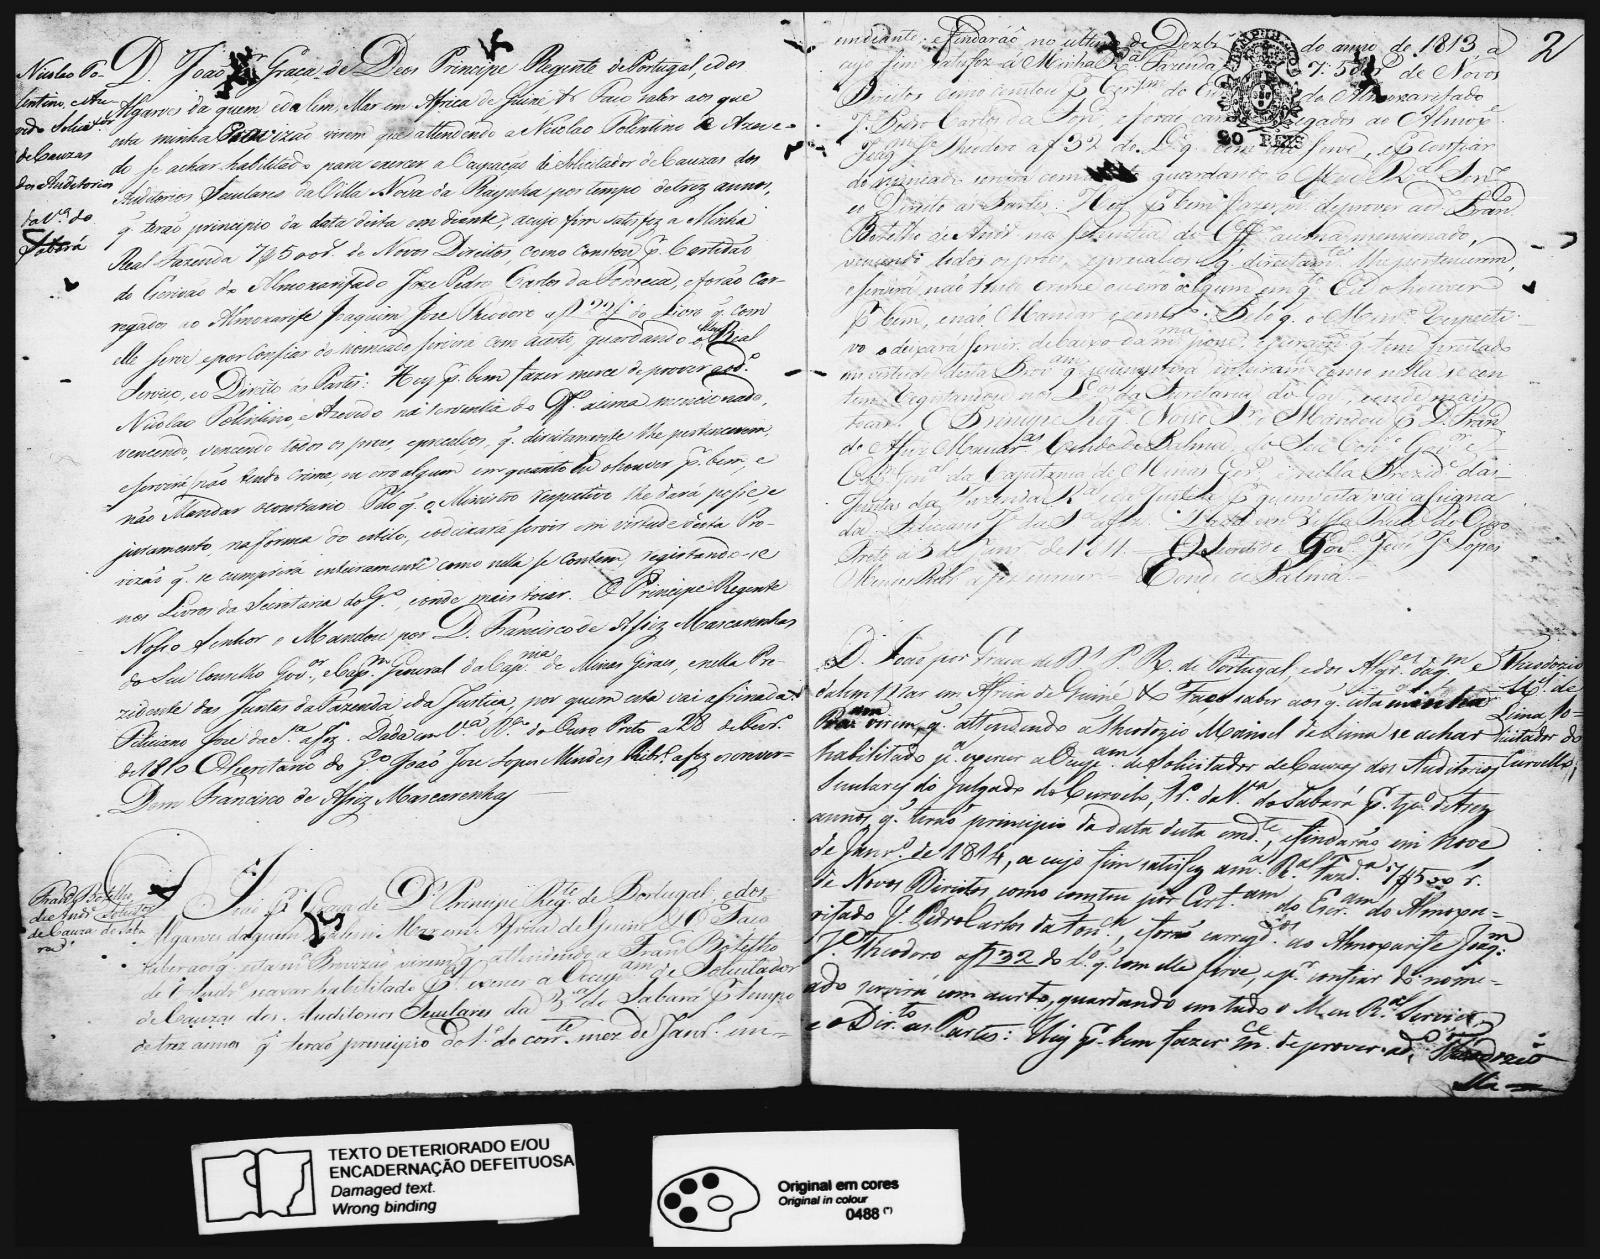 Nicolao Po-
lentino e Aze-
vedo Solicit.or
de Cauzas
dos Auditorios
da V.a do
Sabará
D. João por Graça de Deos Principe Regente de Portugal, e dos
Algarves da quem e da lem, Mar em Africa de Guiné &c Faço saber aos que
esta minha Provizão virem que attendendo a Nicolao Polentino de Azeve-
do se achar habilitado para exercer a Occupação de Solicitador de Cauzas dos
Auditorios Seculares da Villa Nova da Raynha por tempo de trez annos,
q. terão principio da data desta em diante, a cujo fim satisfez a Minha
Real Fazenda 7$500 r.s de Novos Direitos, como constou p. Certidão
do Escrivão do Almoxarifado Joze Pedro Carlos da Fonseca, e forão Car-
regados ao Almoxarife Joaquim Joze Theodoro a f do Livro q. com
elle serve e por confiar do nomeado servirá com acerto, guardando o Meu Real
Serviço, e o Direito as Partes: Hey p. bem fazer merce de prover ao d.o
Nicolao Polentino e Azevedo na serventia do Off.o acima mencionado,
vencendo, vencendo todos os proes, e precalços, q. direitamente lhe pertencerem,
e servirá não tendo crime, ou erro algum em quanto Eu o houver p. bem, e
não Mandar o contrario Pelo q. o Ministro respectivo lhe dará posse e
juramento na forma do estilo, e o deixará servir em virtude desta Pro-
vizão q. se cumprirá inteiramente como nella se contem, registando-se
nos Livros da Secretaria do G.o, e onde mais tocar. O Principe Regente
Nosso Senhor o Mandou por D. Francisco de Assiz Mascarenhas
do Seu Conselho Gov.or, e Cap.m General da Cap.nia de Minas Geraes, e nella Pre-
zidente das Juntas da Fazenda e da Justiça, por quem esta vai assinada.
Feliciano Joze da S.a a fez. Dada em V.a R.a do Ouro Preto a 28 de
de 1810 O Secretario do G.o João Joze Lopes Mendes Ribr.o a fez escrever-
Dom Francisco de Assiz Mascarenhas
Fran.co Botelho
de Andr.e Solicitor
de Cauza de Saba
rá
D. João p. Graça de D.s Principe Reg.te de Portugal, e dos
Algarves daquem e dalem Mar em Africa de Guiné &c Faço
saber aos q. esta m.a Provizão virem q. attendendo a Fran.co Botelho
de Andr.e se achar habilitado p.a exercer a Occup.am de Solicitador
de Cauzas dos Auditorios Seculares da V.a do Sabará p. tempo
de trez annos q. terão principio do 1.o do corr.te mez de Janr.o em-
2
emdiante, e findarão no ultimo de Dezbr.o do anno de 1813 a
cujo fim satisfez a Minha R.al Fazenda 7:500 r.s de Novos
Direitos como constou p. Cert.am do do Almoxarifado
J.e Pedro Carlos da Fon.ca, e forão carregados ao Almox.e
Joaq.m J.e Theodoro a f 32 do L.o q. com elle serve, e p. confiar
do nomeado servirá com guardando o Meu R.al Serv.o
e o Direito as Partes: Hey p. bem fazer m.ce de prover ao d.o Fran.co
Botelho de Andr.e na serventia do Off.o acima mencionado,
vencendo todos os proes, e precalços q. direitam.te lhe pertencerem,
e servirá não tendo crime ou erro algum em q.to Eu o houver
p. bem, e não Mandar o contr.o Pelo q. o Menr.o respecti-
vo o deixará servir debaixo da m.ma posse, e juram.to q. tem prestado
em virtude desta Prov.am q. se cumprirá inteiram.te como nella se con
tem Registandose nos L.os da Secretaria do Gov.o, e onde mais
tocar. O Principe Reg.te Nosso S.r o Mandou p. D. Fran.co
de Assiz Mascar.as Conde de Palma, do Seu Con.o Gov.or e
Cap.m Gen.al da Capitania de Minas Ger.s e nella Prezid.e das
Juntas da Fazenda R.al e da Justiça p. quem esta vai assigna
da. Feliciano J.e da S.a a fez. Dada em Villa Rica do Ouro
Preto a 3 de Janr.o de 1811. O Secret.o do Gov.o João J.e Lopes
Mendes Ribr.o a fez escrever - Conde de Palma -
Theodozio
M.el de
Lima So-
licitador do
Curvello
D. João por Graça de D.s P. R. de Portugal, e dos Algr.es daq.m e
dalem Mar em Africa de Guiné &c Faço saber aos q. esta minha
Prov.am virem, q. attendendo a Theodozio Manoel de Lima se achar
habilitado p.a exercer a Ocup.am de Solicitador de Cauzas dos Auditorios
Seculares do Julgado do Curvelo, T.o da V.a do Sabará p. tp.o de trez
annos, q. terão principio da data desta emd.te, e findarão em nove
de Janr.o de 1814, a cujo fim satisfez a m.a R.al Fazd.a 7$500 r.
de Novos Direitos como constou por Cert.am do Escr.am do Almoxa-
rifado J.e Pedro Carlos da Fon.ca, e forão carregd.os ao Almoxarife Joaq.m
J.e Theodoro a f 132 do L.o q. com elle serve, e p.r confiar do nome-
ado servirá com acerto, guardando em tudo o Meu R.al Serviço,
e o Dir.to as Partes: Hey p.r bem fazer m.ce de prover ao d.o Theodozio
Ma=
IMPERIO
20 REIS
TEXTO DETERIORADO E/OU
ENCADERNAÇÃO DEFEITUOSA
Damaged text.
Wrong binding
Original em cores
Original in colour
0488 (*)